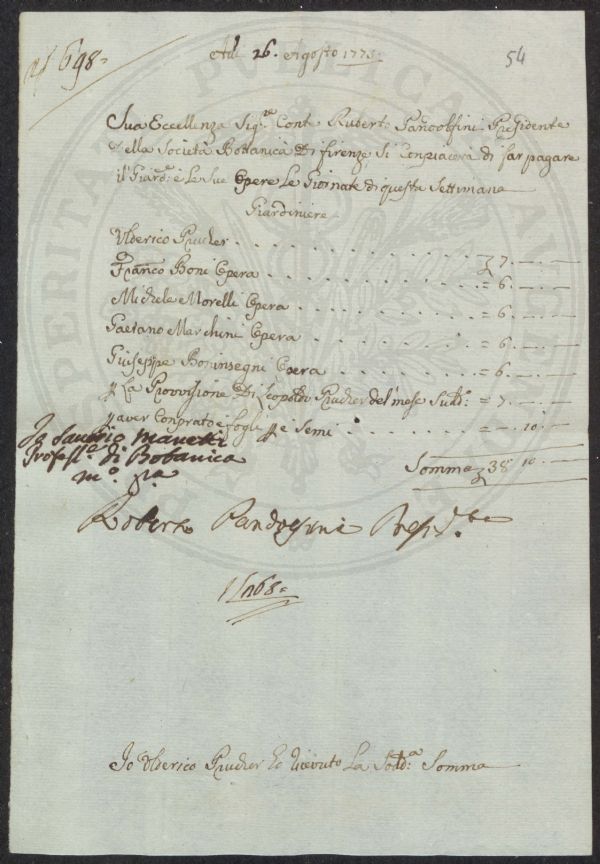 698=
Adì 26. Agosto 1775.
54
Sua Eccellenza Sig.re Conte Ruberto Pandolfini Presidente
della Società Bottanica Di firenze Si Conpiacerà di far pagare
il Giard: e Le Sue Opere Le Giornate di questa Settimana
Giardiniere
Ulderico Prucher . . . . . . . . 7 . — . —
Franco Boni Opera . . . . . . . . = 6 . — . —
Michele Morelli Opera . . . . . . . . = 6 . — . —
Gaetano Marchini Opera . . . . . . . . = 6 . — . —
Giuseppe Boninsegni Opera . . . . . . . . = 6 . — . —
p La Provvisione Di Leopoldo Prucher del mese Sudd: = 7 . — . —
p aver Conprato e fogli p e Semi . . . . — . 10 . —
Io Saverio Manetti
Profess.e di Botanica
m.o p.a
Somma 38 10 . —
Roberto Pandolfini Presid.te
1168=
Io Ulderico Prucher ho ricevuto La Sodd.a Somma
PUBBLICA